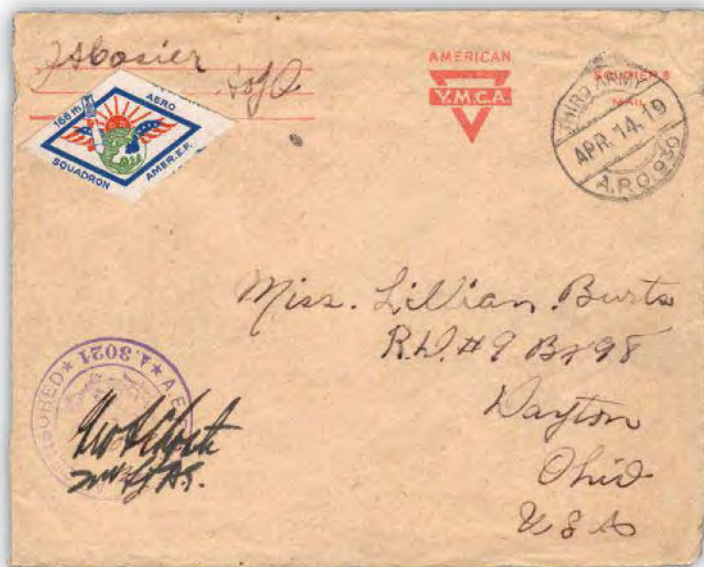 168th AERO
SQUADRON AMER.E.F.
AMERICAN
Y.M.C.A.
SOLDIER'S
MAIL
THIRD ARMY
APR. 14. 19
A.P.O. 930
Miss. Lillian. Burts
R.D. #9 Bx 98
Dayton
Ohio
U S A
A.3021